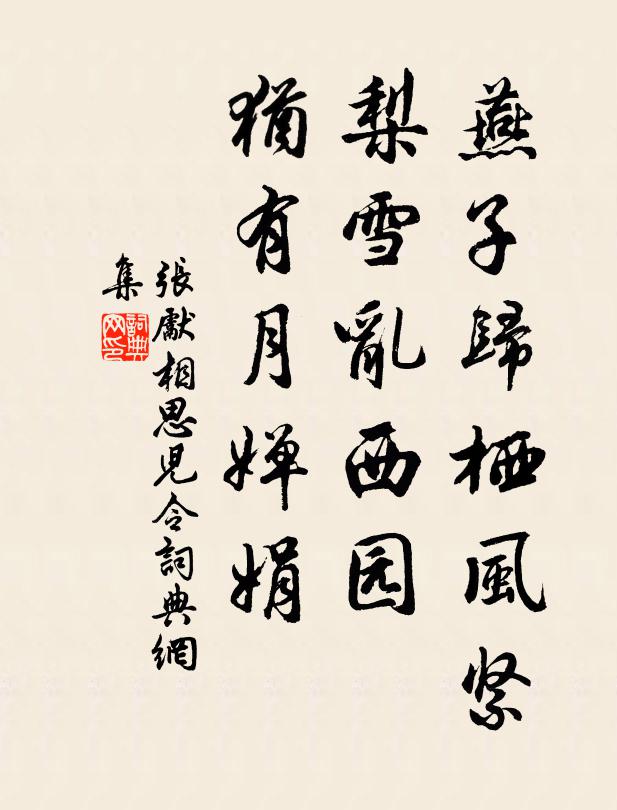 燕子歸栖風紧
梨雪亂西园
猶有月嬋娟
張獻相思児令詞典網
集
詞典
网印